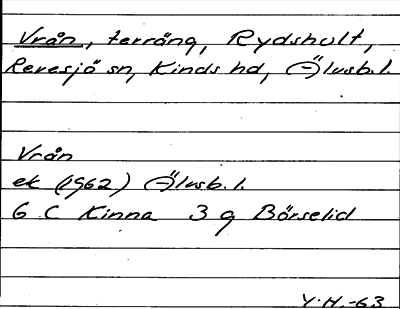 Vrån, terräng, Rydshult,
Revesjö sn, Kinds hd, Älvsb. l.
Vrån
ek (1962) Älvsb. l.
6 C Kinna 3 g Börselid
Y.H.-63